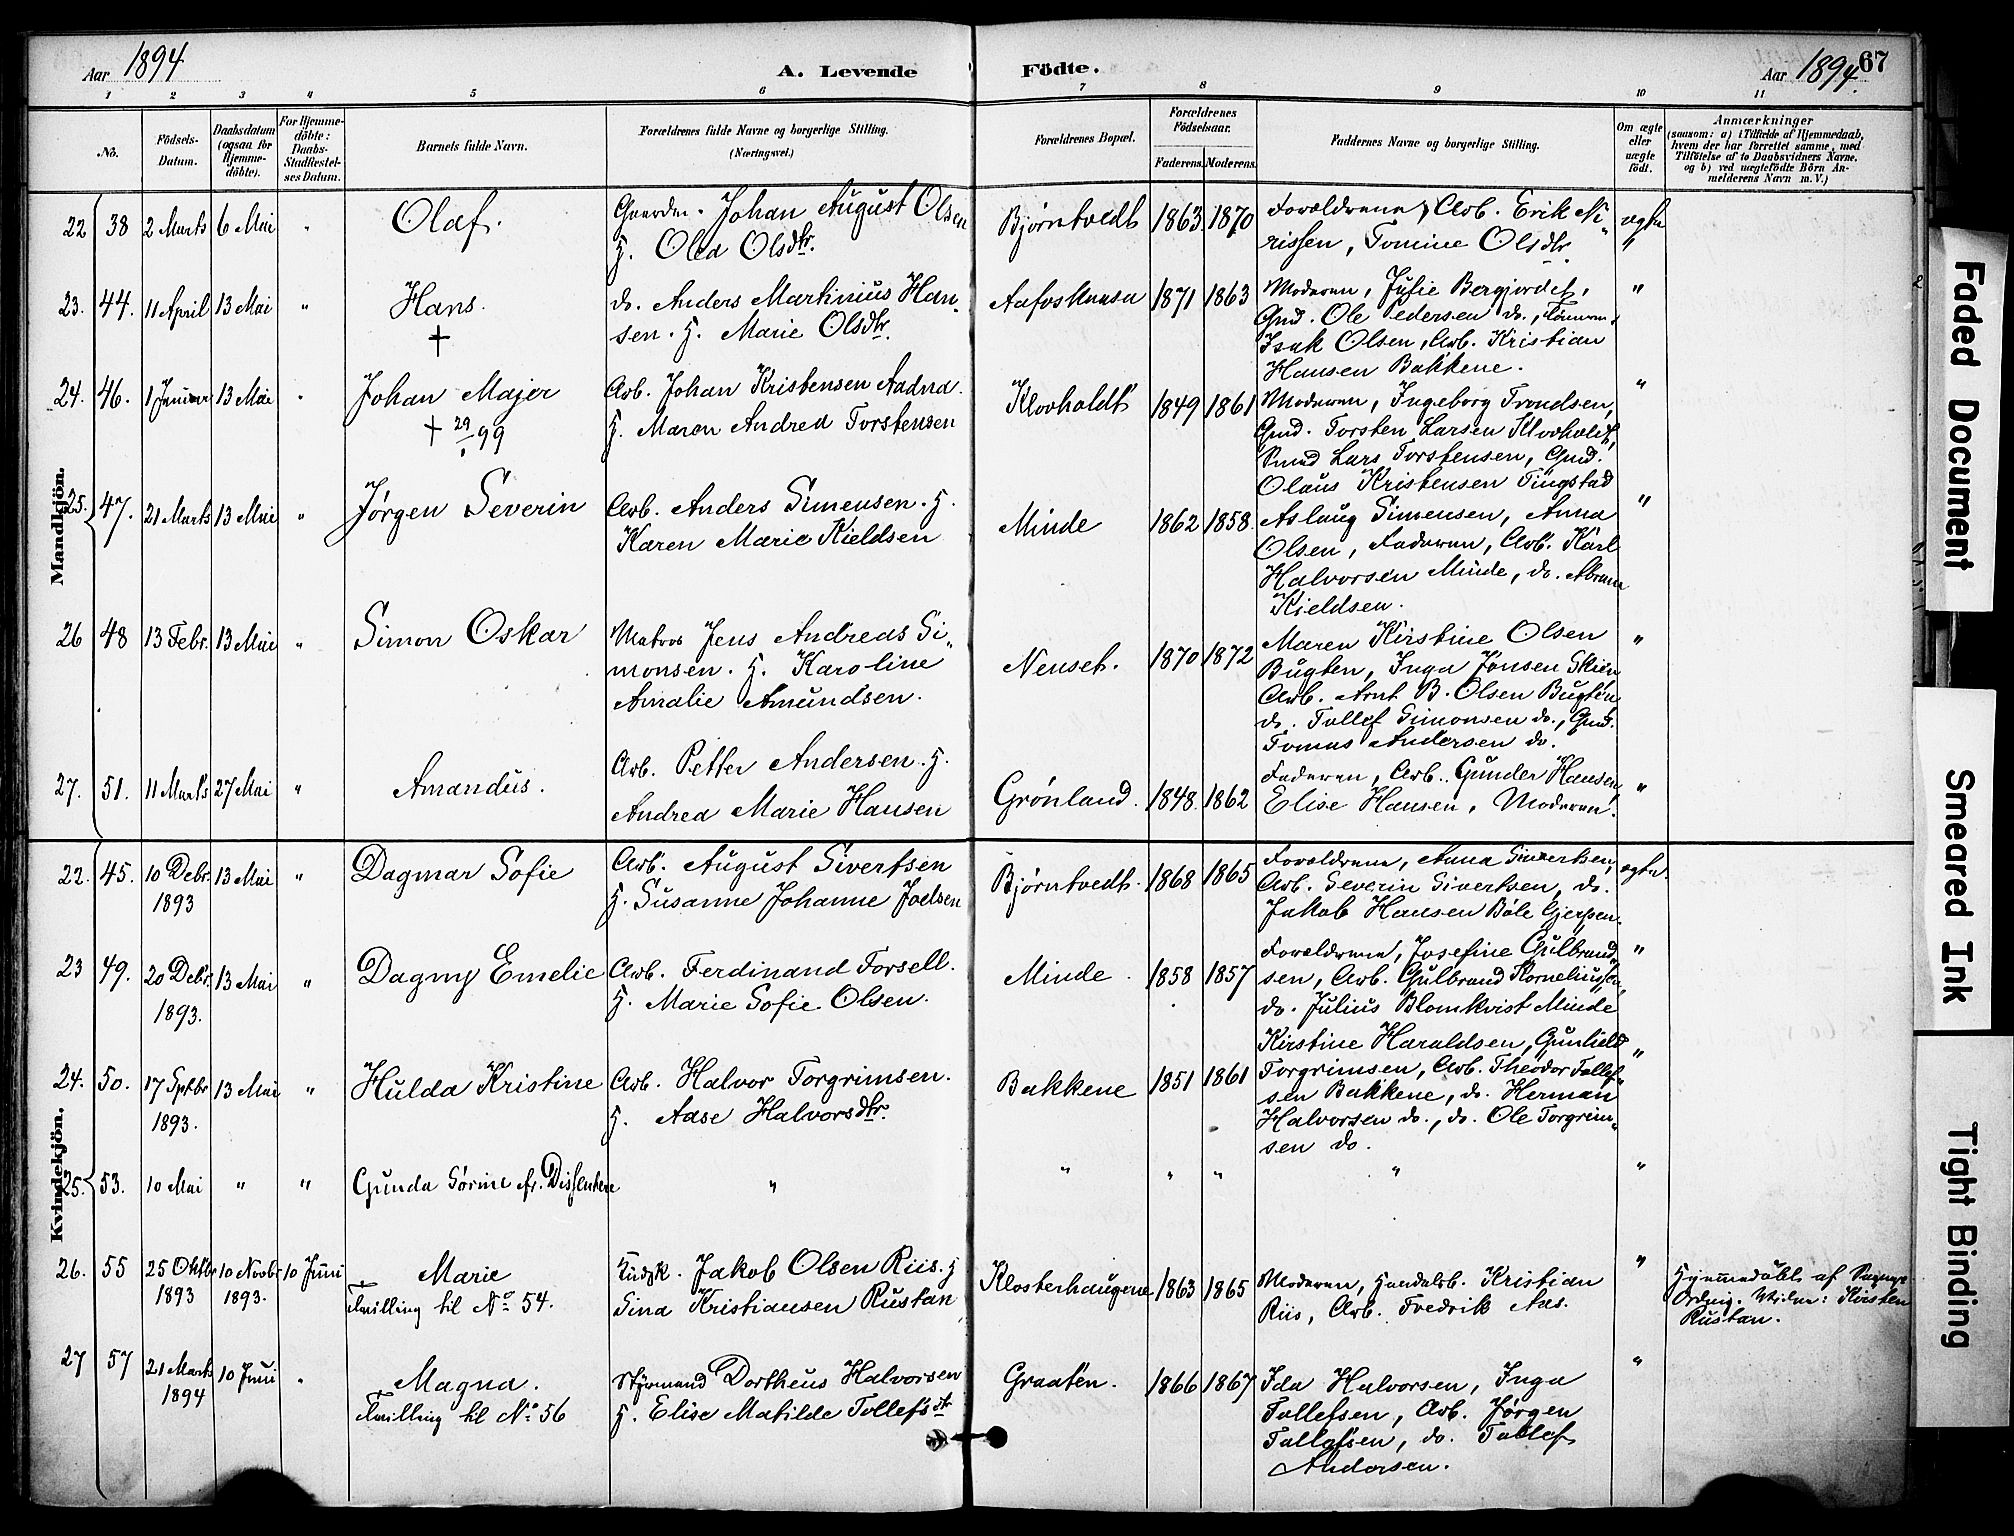 Aar 1894
A. Levende Födte.
Aar 1894. 67
1 2 3 4 5 6 7 8 9 10 11
No.
Födsels-Datum.
Daabsdatum (ogsaa for Hjemme-döbte).
For Hjemme-döbte: Daabs-Stadfæstel-ses Datum.
Barnets fulde Navn.
Forældrenes fulde Navne og borgerlige Stilling.
(Næringsvei.)
Forældrenes Bopæl.
Forældrenes Födselsaar.
Faderens. Moderens.
Faddernes Navne og borgerlige Stilling.
Om ægte eller uægte födt.
Anmærkninger
(saasom: a) i Tilfælde af Hjemmedaab, hvem der har forrettet samme, med Tilföielse af to Daabsvidners Navne, og b) ved uægtefödte Börn An-melderens Navn m. V.)
Mandkjön.
22 38 2 Marts 6 Mai " Olaf. Gaardm. Johan August Olsen
H. Olea Olsdtr. Bjørntvedt 1863 1870 Forældrene, Arb. Erik Ni-
rissen, Tomine Olsdtr. ægte
23. 44. 11 April 13 Mai " Hans. do. Anders Martinius Han-
sen. H. Marie Olsdtr. 1871 1863 Moderen, Julie Bergjordet, "
✝
Gmd. Ole Pedersen do.,
Isak Olsen, Arb. Kristian
Hansen Bakkene.
24. 46. 1 Januar 13 Mai " Johan Majer Arb. Johan Kristensen Aadna.
✝ 29/1 99
H. Maren Andrea Torstensen Klovholdt 1849 1861 Moderen, Ingeborg Trondsen, "
Gmd. Torsten Larsen Klovholdt,
Lars Torstensen, Gmd.
Olaus Kristensen Tingstad
25. 47. 21 Marts 13 Mai " Jørgen Severin Arb. Anders Simensen. H.
Karen Marie Kieldsen Minde 1862 1858. Aslaug Simensen, Anna "
Olsen, Faderen, Arb. Karl
Halvorsen Minde, do. Abram
Kieldsen.
26 48 13 Febr. 13 Mai " Simon Oskar Matros Jens Andreas Si-
monsen. H. Karoline
Amalie Amundsen. Nenset. 1870 1872 Maren Kirstine Olsen "
Bugten, Inga Jönsen Skien
Arb. Arnt B. Olsen Bugten,
do. Tollef Simonsen do., Gmd.
Tomas Andersen do.
27. 51. 11 Marts 27 Mai " Amandus. Arb. Petter Andersen. H.
Andrea Marie Hansen Grönland. 1848. 1862 Faderen, Arb. Gunder Hansen, "
Elise Hansen, Moderen.
Kvindekjön.
22. 45. 10 Debr. 1893 13 Mai " Dagmar Sofie Arb. August Sivertsen
H. Susanne Johanne Joelsen Bjørntvedt. 1868 1865 Forældrene, Anna Sivertsen, ægte.
Arb. Severin Sivertsen, do.
Jakob Hansen Böle Gjerpen.
23 49. 20 Debr. 1893. 13 Mai " Dagny Emelie Arb. Ferdinand Forsell.
H. Marie Sofie Olsen. Minde. 1858 1857 Forældrene, Josefine Gulbrand- "
sen, Arb. Gulbrand Korneliussen,
do. Julius Blomkvist Minde
24. 50. 17 Septbr 1893. 13 Mai " Hulda Kristine Arb. Halvor Torgrimsen.
H. Aase Halvorsdtr. Bakkene 1851 1861 Kirstine Haraldsen, Gunhild "
Torgrimsen, Arb. Theodor Tollef-
sen Bakkene, do. Herman
Halvorsen do., do. Ole Torgrim-
sen do.
25. 53. 10 Mai " " Gunda Sörine fr. Dissentere " " " " " "
26. 55 25 Oktbr 1893 10 Novbr 1893. 10 Juni Marie
Tvilling til No 54. Jakob Olsen Riis. H
Sina Kristiansen Rustan Klosterhaugene 1863 1865 Moderen, Handelsb. Kristian "
Riis, Arb. Fredrik Aas. Hjemmedöbt af
Kirsten
Rustan.
27 57 21 Marts 1894 10 Juni " Magna.
Tvilling til No 56 Styrmand Dortheus Halvorsen
H. Elise Matilde Tollefsdtr Graaten. 1866 1867 Ida Halvorsen, Inga "
Tollefsen, Arb. Jørgen
Tollefsen, do. Tollef
Andersen.
Faded Document
Smeared Ink
Tight Binding